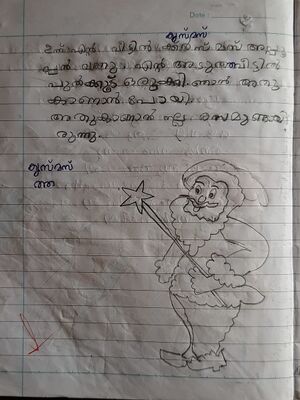 Date :
ക്രിസ്മസ്
എന്റെ വീട്ടിൽ ക്രിസ്മസ് അപ്പു
പ്പൻ വന്നു. എന്റെ അടുത്തവീട്ടിൽ
പുൽക്കൂട് ഒരുക്കി. ഞാൻ അതു
കാണാൻ പോയി.
അതുകാണാൻ നല്ല രസമുണ്ടായി
രുന്നു.
ക്രിസ്മസ്